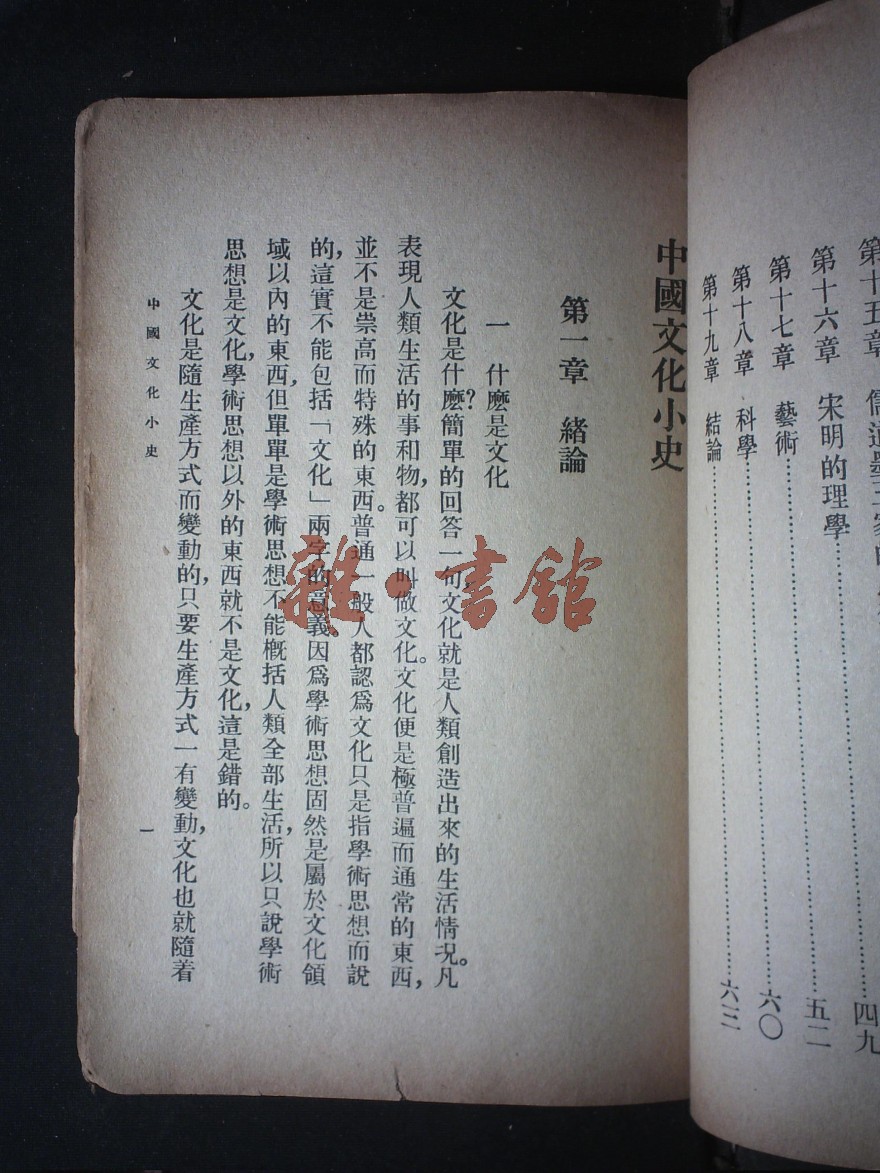 第十五章 儒道墨三家的
四九
第十六章 宋明的理學……五二
第十七章 藝術……六〇
第十八章 科學
第十九章 結論……六三
中國文化小史
第一章 緒論
一 什麼是文化
文化是什麼?簡單的回答一句,文化就是人類創造出來的生活情況。凡
表現人類生活的事和物,都可以叫做文化。文化便是極普遍而通常的東西,
並不是崇高而特殊的東西。普通一般人都認爲文化只是指學術思想而說
的,這實不能包括「文化」兩字的意義因爲學術思想固然是屬於文化領
域以內的東西,但單單是學術思想不能概括人類全部生活,所以只說學術
思想是文化,學術思想以外的東西就不是文化,這是錯的。
文化是隨生產方式而變動的,只要生產方式一有變動,文化也就隨着
中國文化小史
一
雜·書館